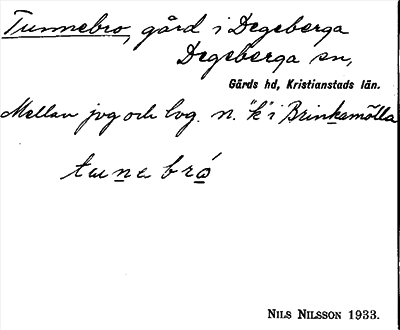 Tunnebro, gård i Degeberga
Degeberga sn,
Gärds hd, Kristianstads län.
Mellan jvg och lvg. n. "k" i Brinkamölla
NILS NILSSON 1933.